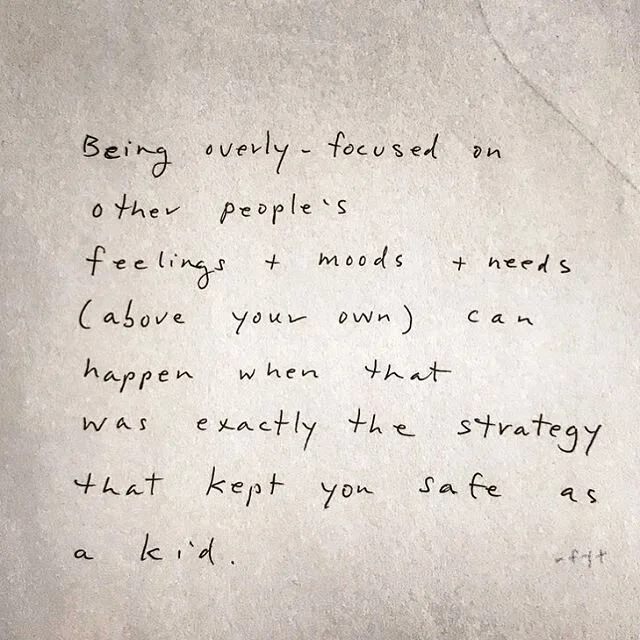 Being overly-focused on
other people's
feelings + moods + needs
(above your own) can
happen when that
was exactly the strategy
that kept you safe as
a kid.